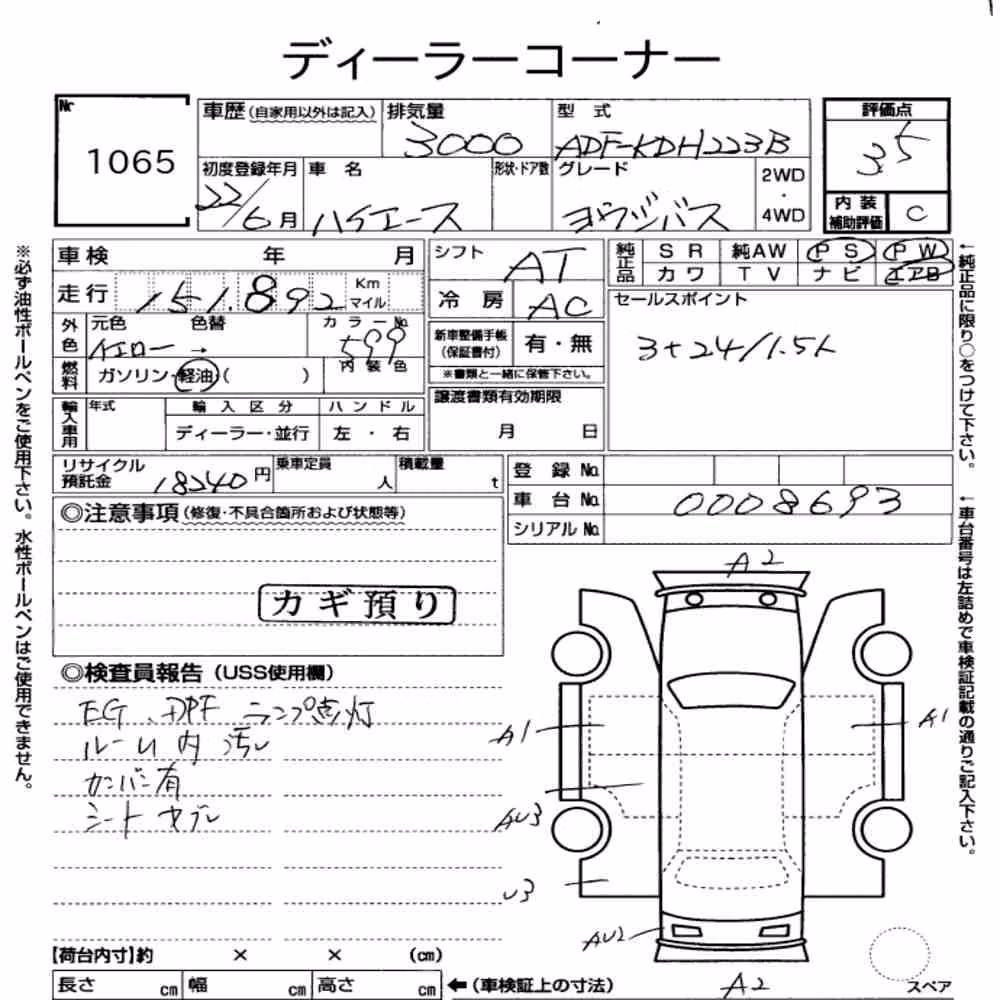 ディーラーコーナー
Nr
1065
車歴(自家用以外は記入)
排気量
3000
型 式
ADF-KDH223B
評価点
3.5
初度登録年月
22/6月
車 名
ハイエース
形状・ドア数
グレード
ヨウジバス
2WD
・
4WD
内 装
補助評価
C
車検 年 月
シフト
AT
純正品
S R 純AW P S P W
カワ T V ナビ エアB
走行 151.892 Km
マイル
冷 房 AC
セールスポイント
3+24/1.5人
外色
元色 色替 カラーNo.
イエロー → 599
新車整備手帳
(保証書付)
有・無
※書類と一緒に保管下さい。
燃料
ガソリン・軽油・( )
内 装 色
輸入車用
年式
輸 入 区 分
ハ ン ド ル
ディーラー・並行
左 ・ 右
譲渡書類有効期限
月 日
リサイクル
預託金
18240円
乗車定員
人
積載量
t
登 録 No.
車 台 No. 0008693
シリアル No.
◎注意事項(修復・不具合箇所および状態等)
カギ預り
◎検査員報告(USS使用欄)
EG、DPF ランプ点灯
ルーム内 汚レ
カンバン有
シート ヤブレ
A2
A1
A1
AU3
U3
AU2
A2
スペア
【荷台内寸】約 × × (cm)
長さ cm 幅 cm 高さ cm
←(車検証上の寸法)
※必ず油性ボールペンをご使用下さい。水性ボールペンはご使用できません。
←純正品に限り○をつけて下さい。
←車台番号は左詰めで車検証記載の通りご記入下さい。